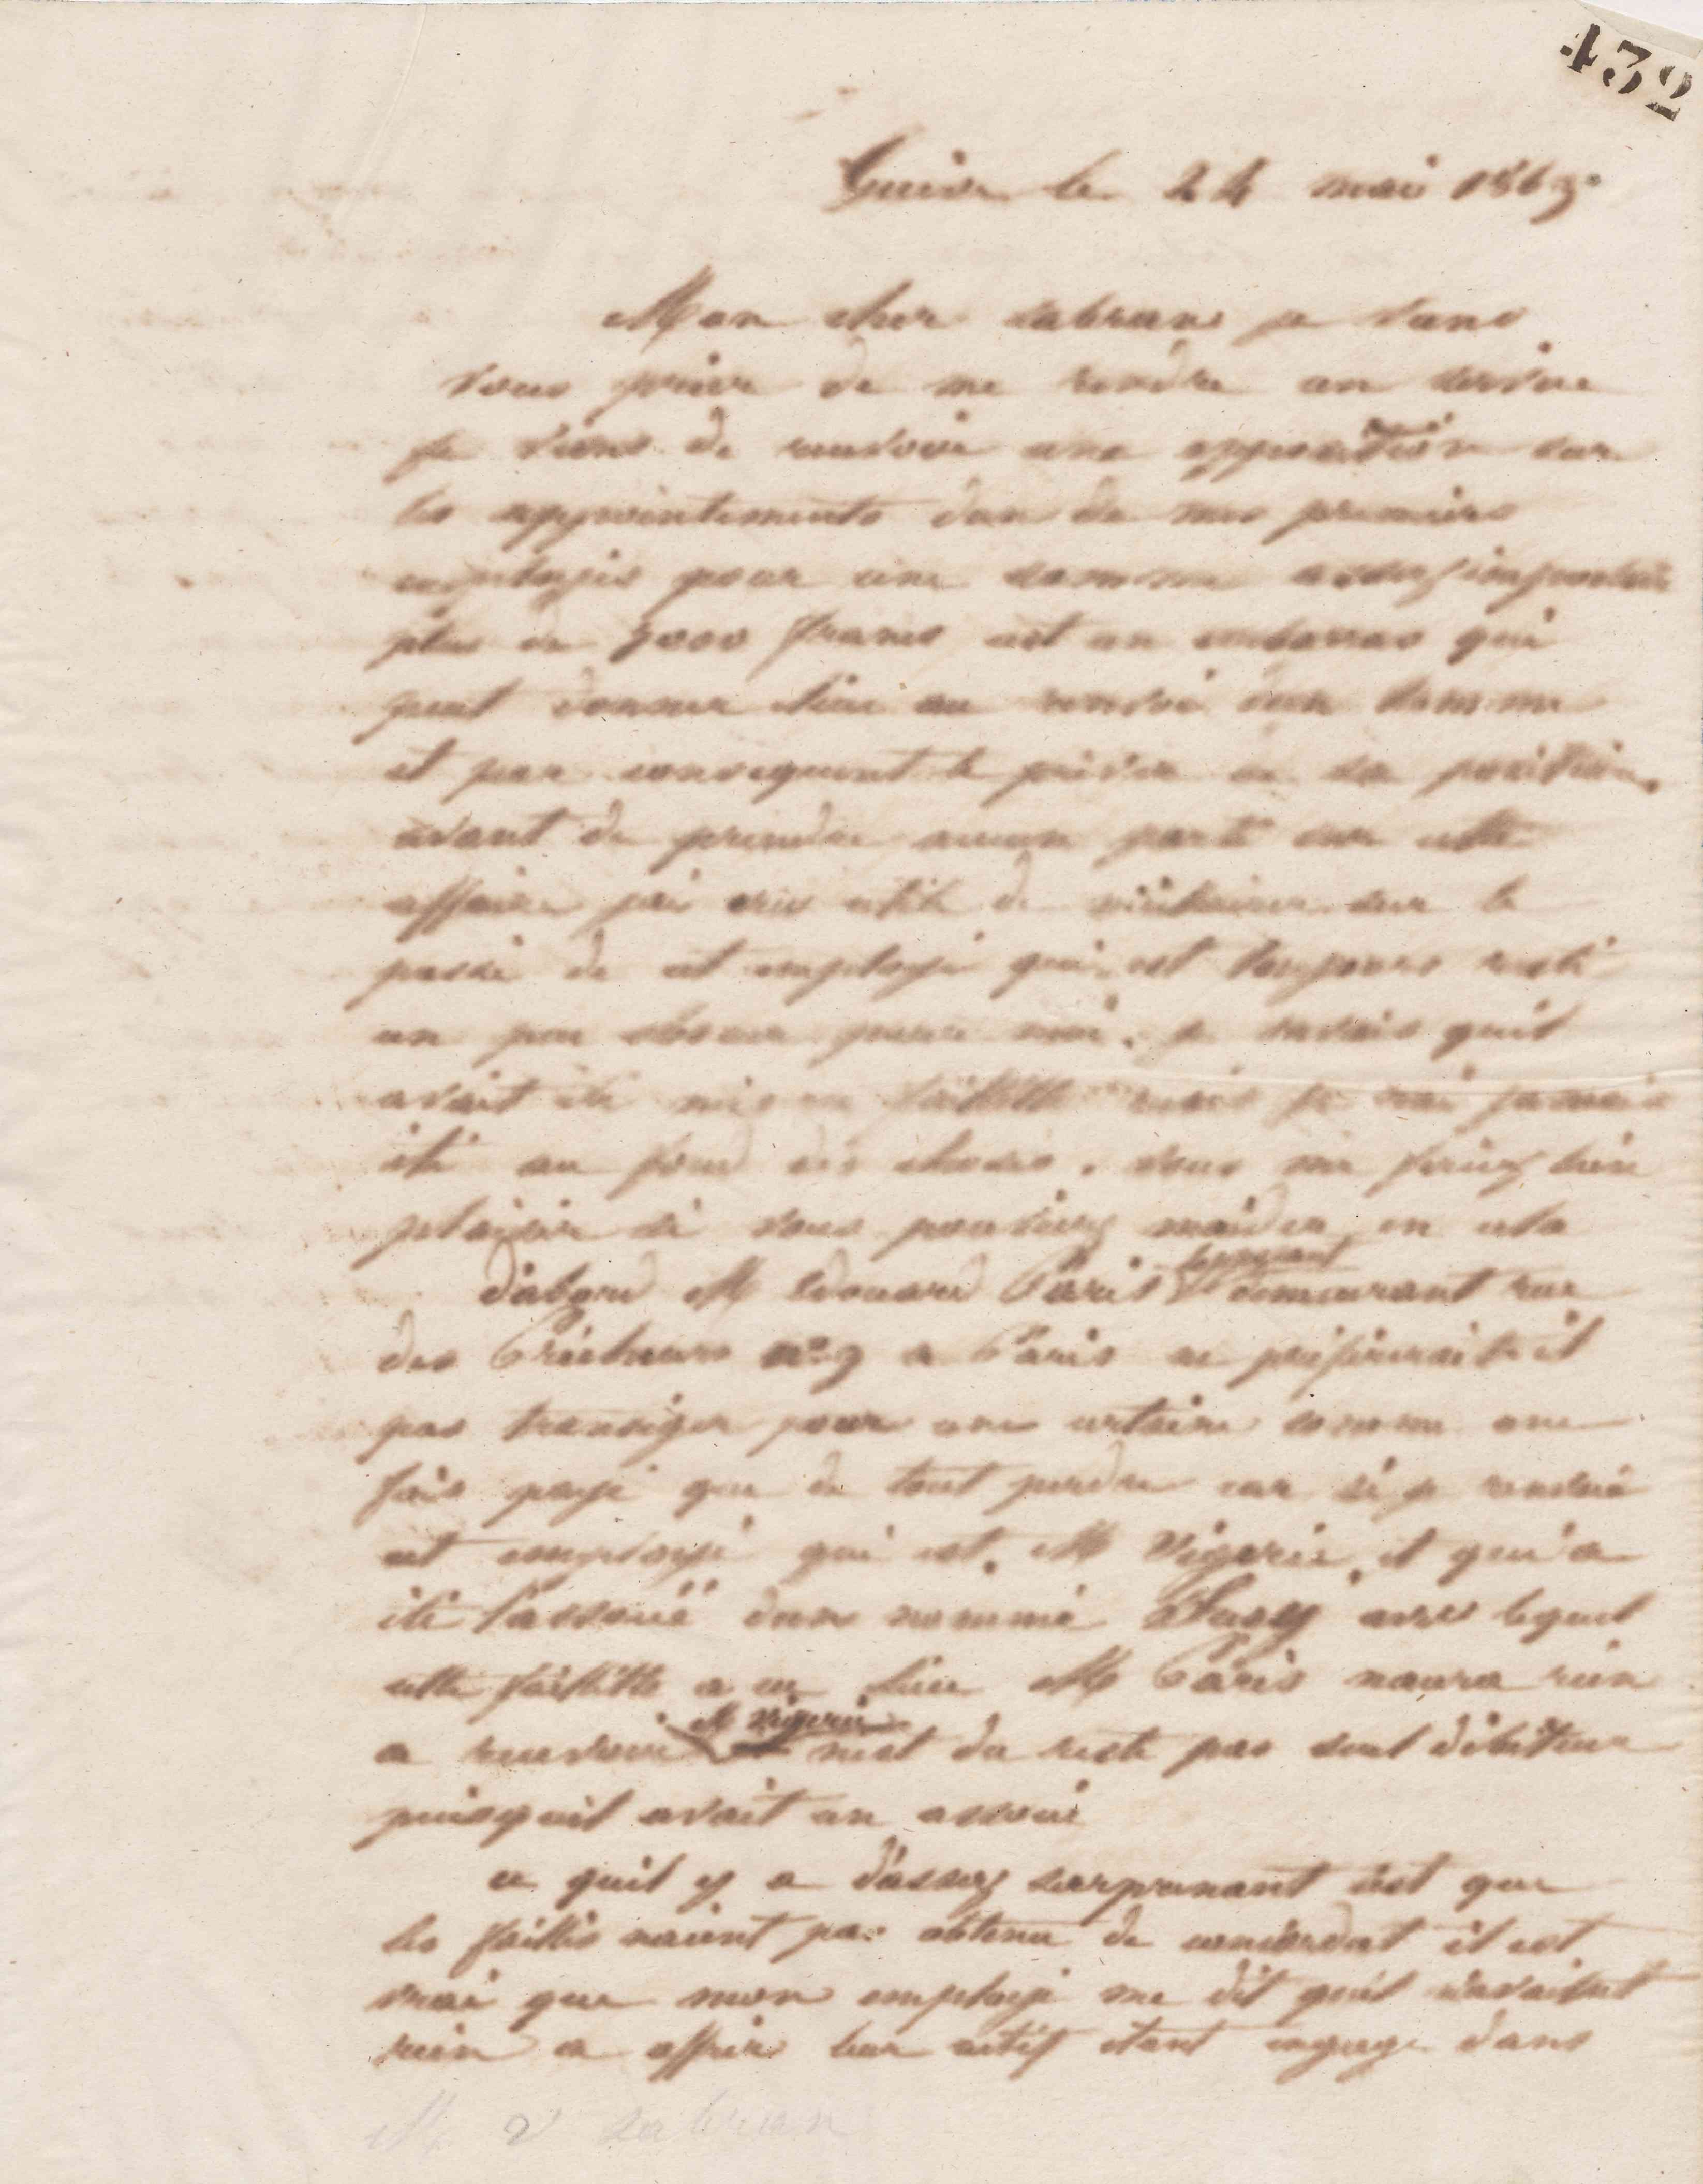 432
Guise le 24 mai 1863.
Mon cher Sabran je viens
vous prier de me rendre un service
je viens de recevoir une opposition sur
les appointements d'un de mes premiers
employés pour une somme assez importante
plus de 7000 francs est un embarras qui
peut donner lieu au renvoi d'un homme
et par consequent le priver de sa position.
avant de prendre aucun parti sur cette
affaire j'ai cru utile de m'éclairer sur le
passé de cet employé qui est toujours resté
un peu obscur pour moi. je savais quil
avait été mis en faillitte mais je n'ai jamais
été au fond des choses. vous me feriez bien
plaisir si vous pouviez m'aider en cela
d'abord M Edouard Paris l'opposant demeurant rue
des Prêcheurs n° 9 a Paris ne préfererait il
pas transiger pour une certaine somme une
fois payé que de tout perdre car si je renvoie
cet employé qui est M Vigerie et qui a
été l'associé d'un nommé avec lequel
cette faillitte a eu lieu M Paris naura rien
a recevoir M Vigerie nest du reste pas seul débiteur
puisquil avait un associé
ce quil y a d'assez surprenant cest que
les faillis naient pas obtenu de concordat il est
vrai que mon employé me dit quil n'avaient
rien a offrir leur actif étant engagé dans
M V Sabran